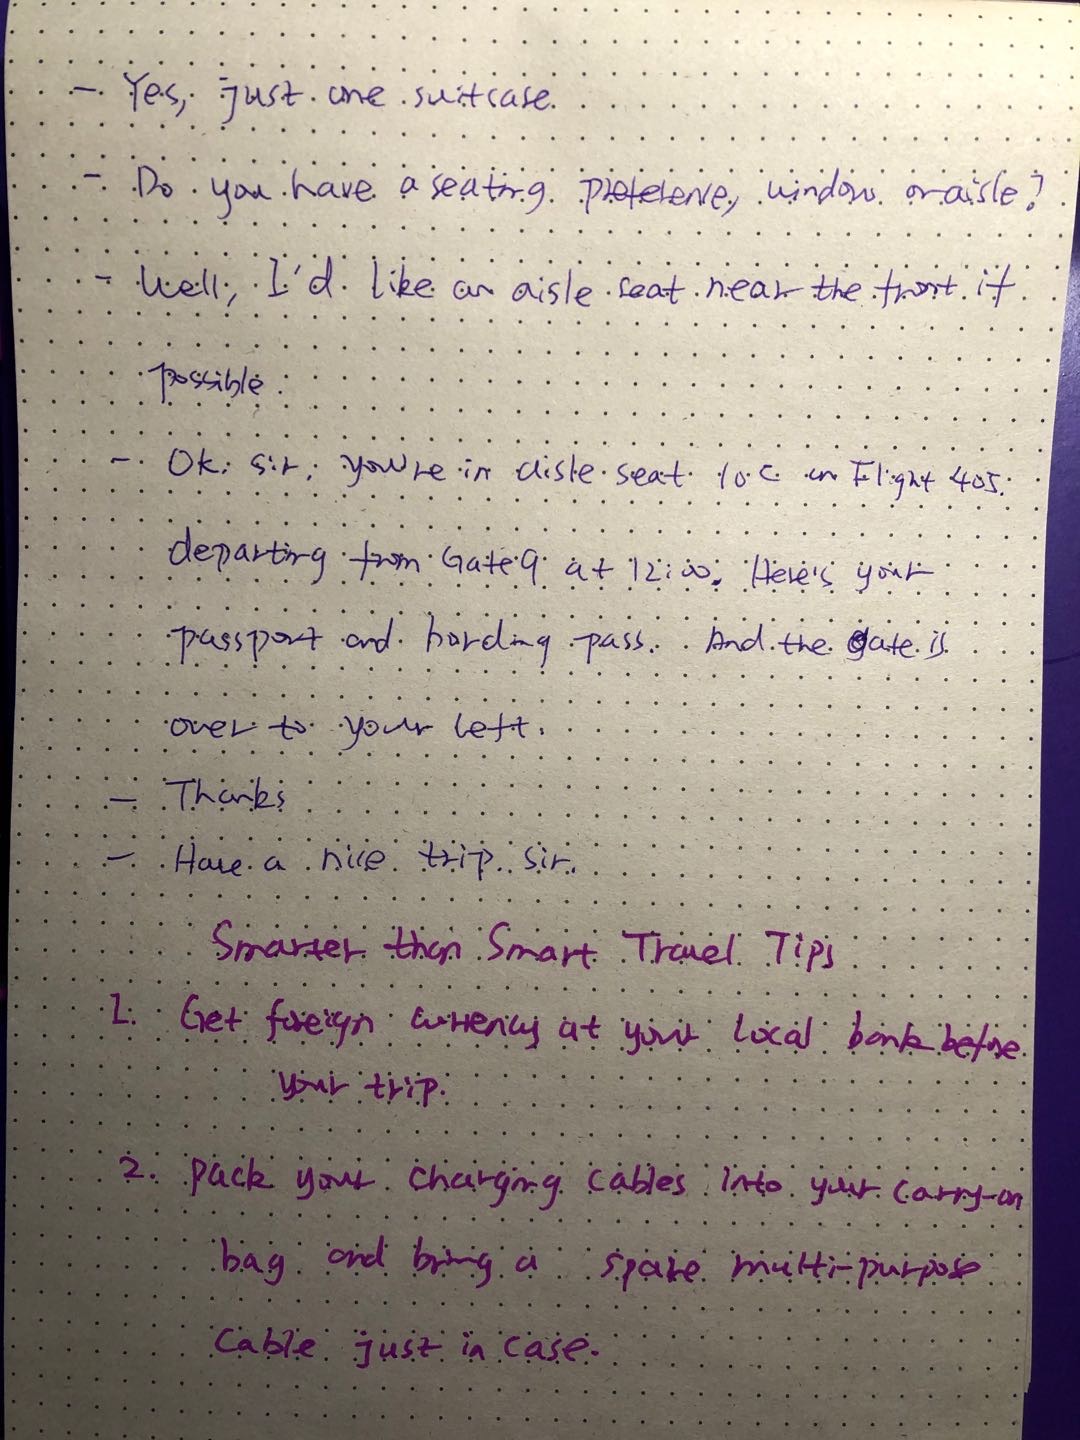 - Yes, just one suitcase.
- Do you have a seating preference, window or aisle?
- Well, I'd like an aisle seat near the front if
possible.
- Ok. sir, you're in aisle seat 10C on Flight 405.
departing from Gate 9 at 12:00. Here's your
passport and bording pass. And the gate is
over to your left.
- Thanks
- Have a nice trip. sir.
Smarter than Smart Travel Tips
1. Get foreign currency at your local bank before
your trip.
2. pack your charging cables into your carry-on
bag and bring a spare multi-purpose
cable just in case.